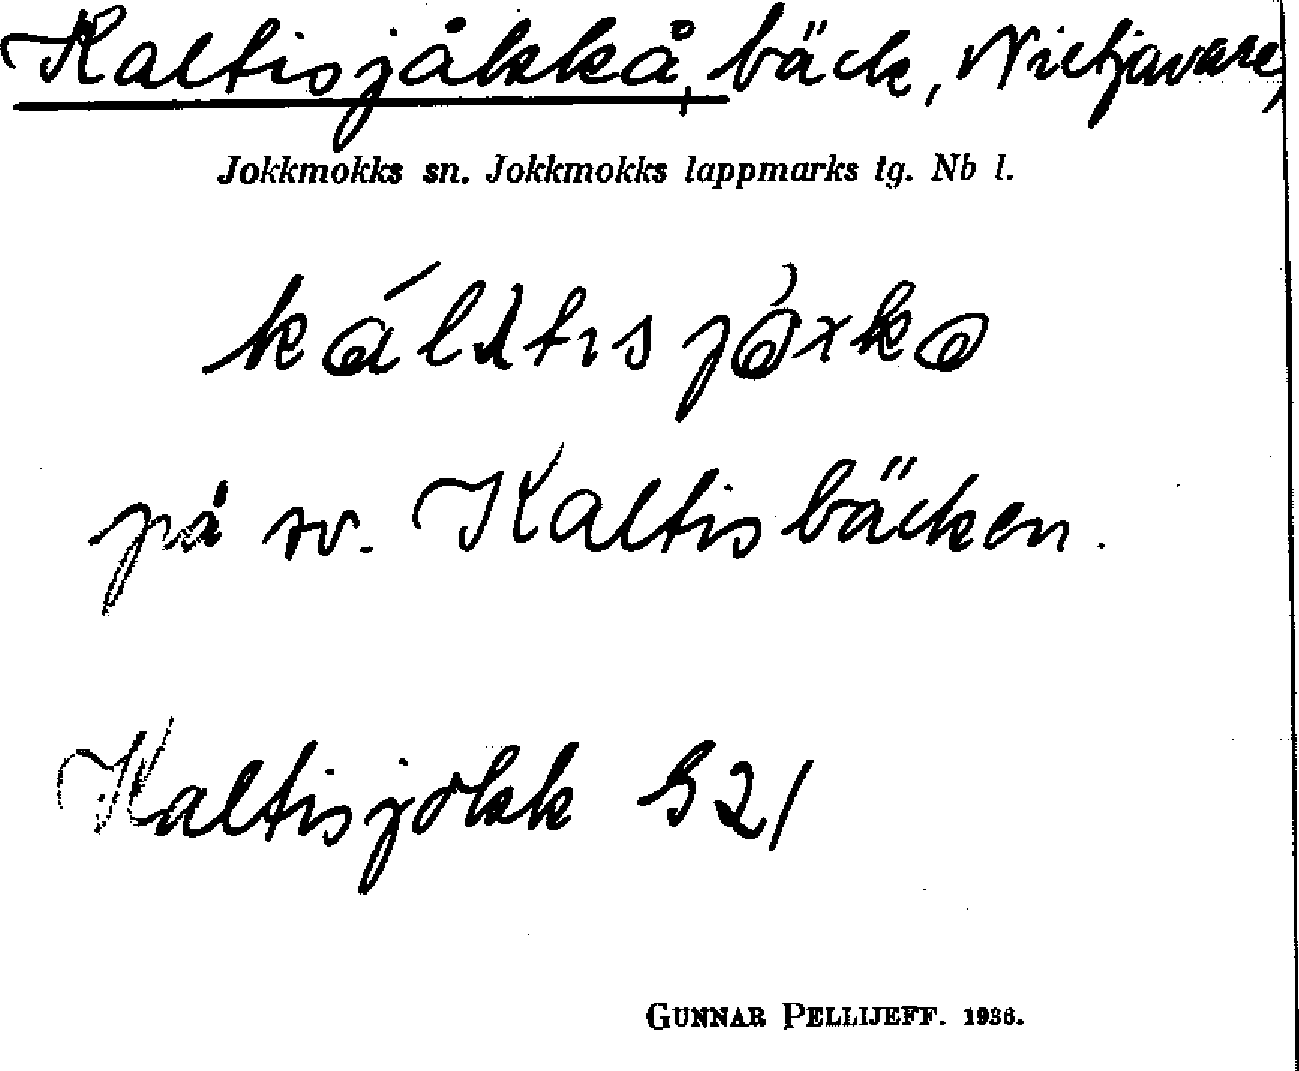 Kaltisjåkkå, bäck, Nietjavare,
Jokkmokks sn. Jokkmokks lappmarks tg. Nb l.
på sv. Kaltisbäcken.
Kaltisjokk S21
GUNNAR PELLIJEFF. 1936.